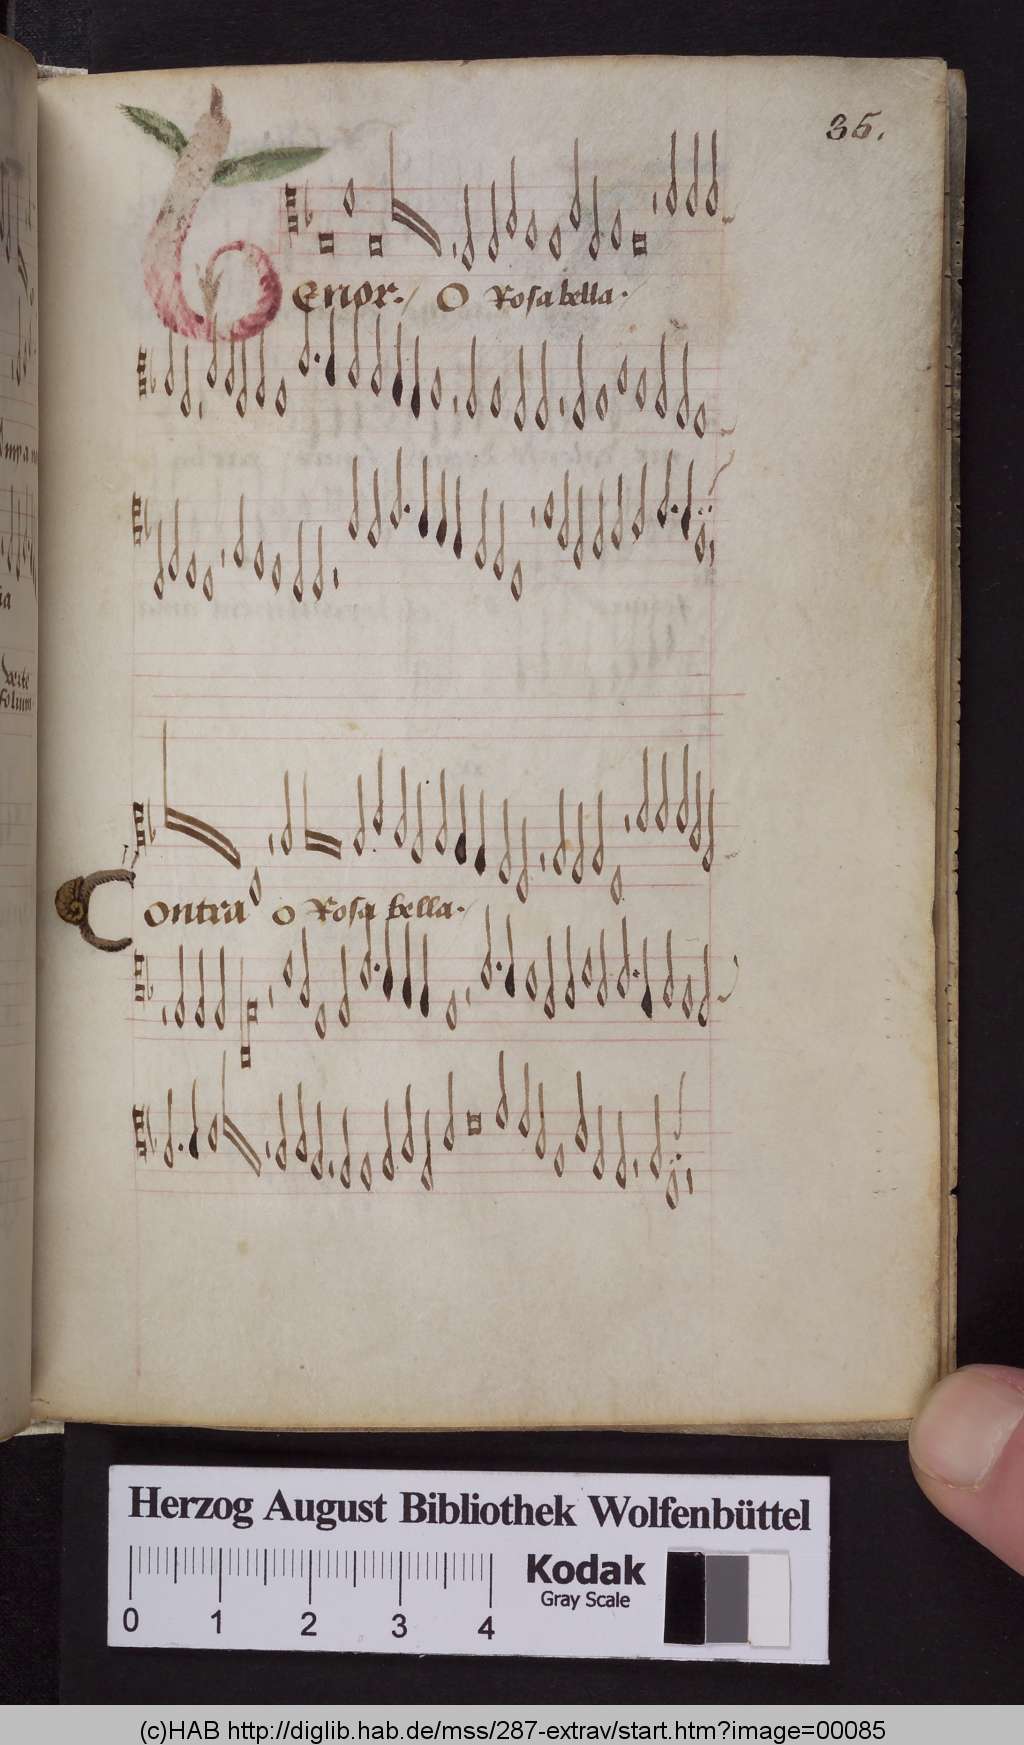 35.
Tenor. O Rosa bella.
Contra O Rosa bella.
Herzog August Bibliothek Wolfenbüttel
Kodak
Gray Scale
0 1 2 3 4
(c)HAB http://diglib.hab.de/mss/287-extrav/start.htm?image=00085